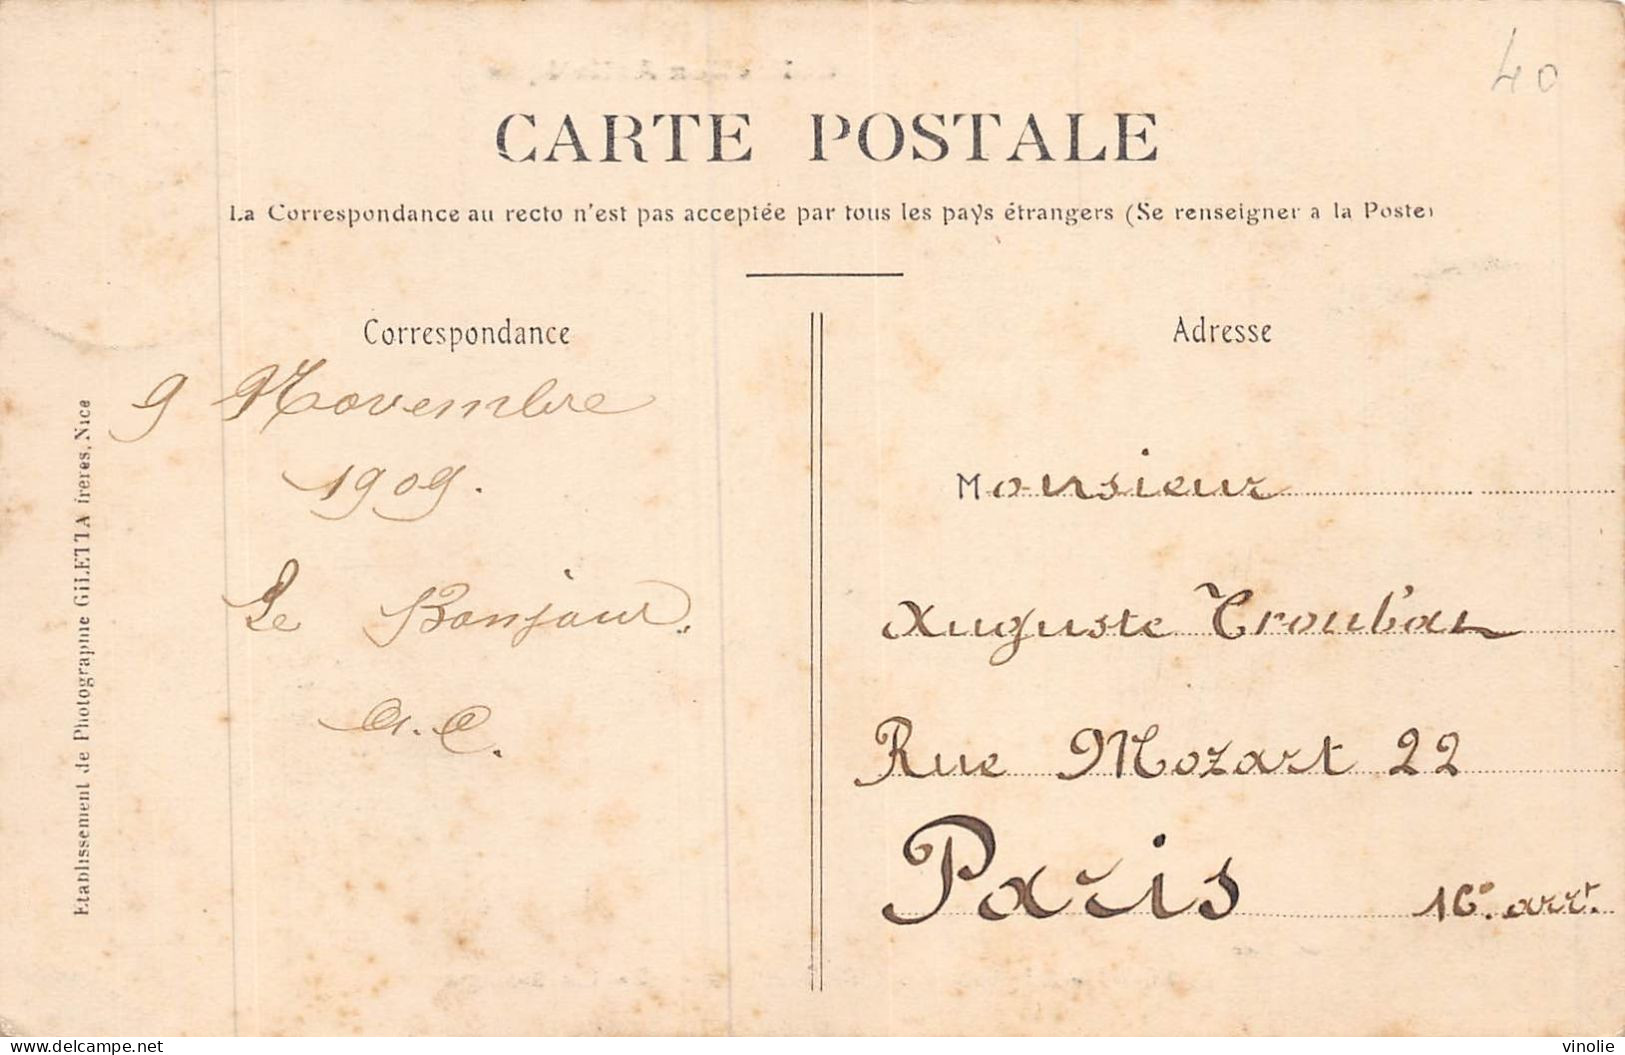 40
CARTE POSTALE
La Correspondance au recto n'est pas acceptée par tous les pays étrangers (Se renseigner a la Poste)
Correspondance
9 Novembre
1909.
Le Bonjour.
A. C.
Etablissement de Photographie GILETTA frères, Nice
Adresse
Monsieur
Auguste Troubat
Rue Mozart 22
Paris 16e. arrt.
delcampe.net
vinolie